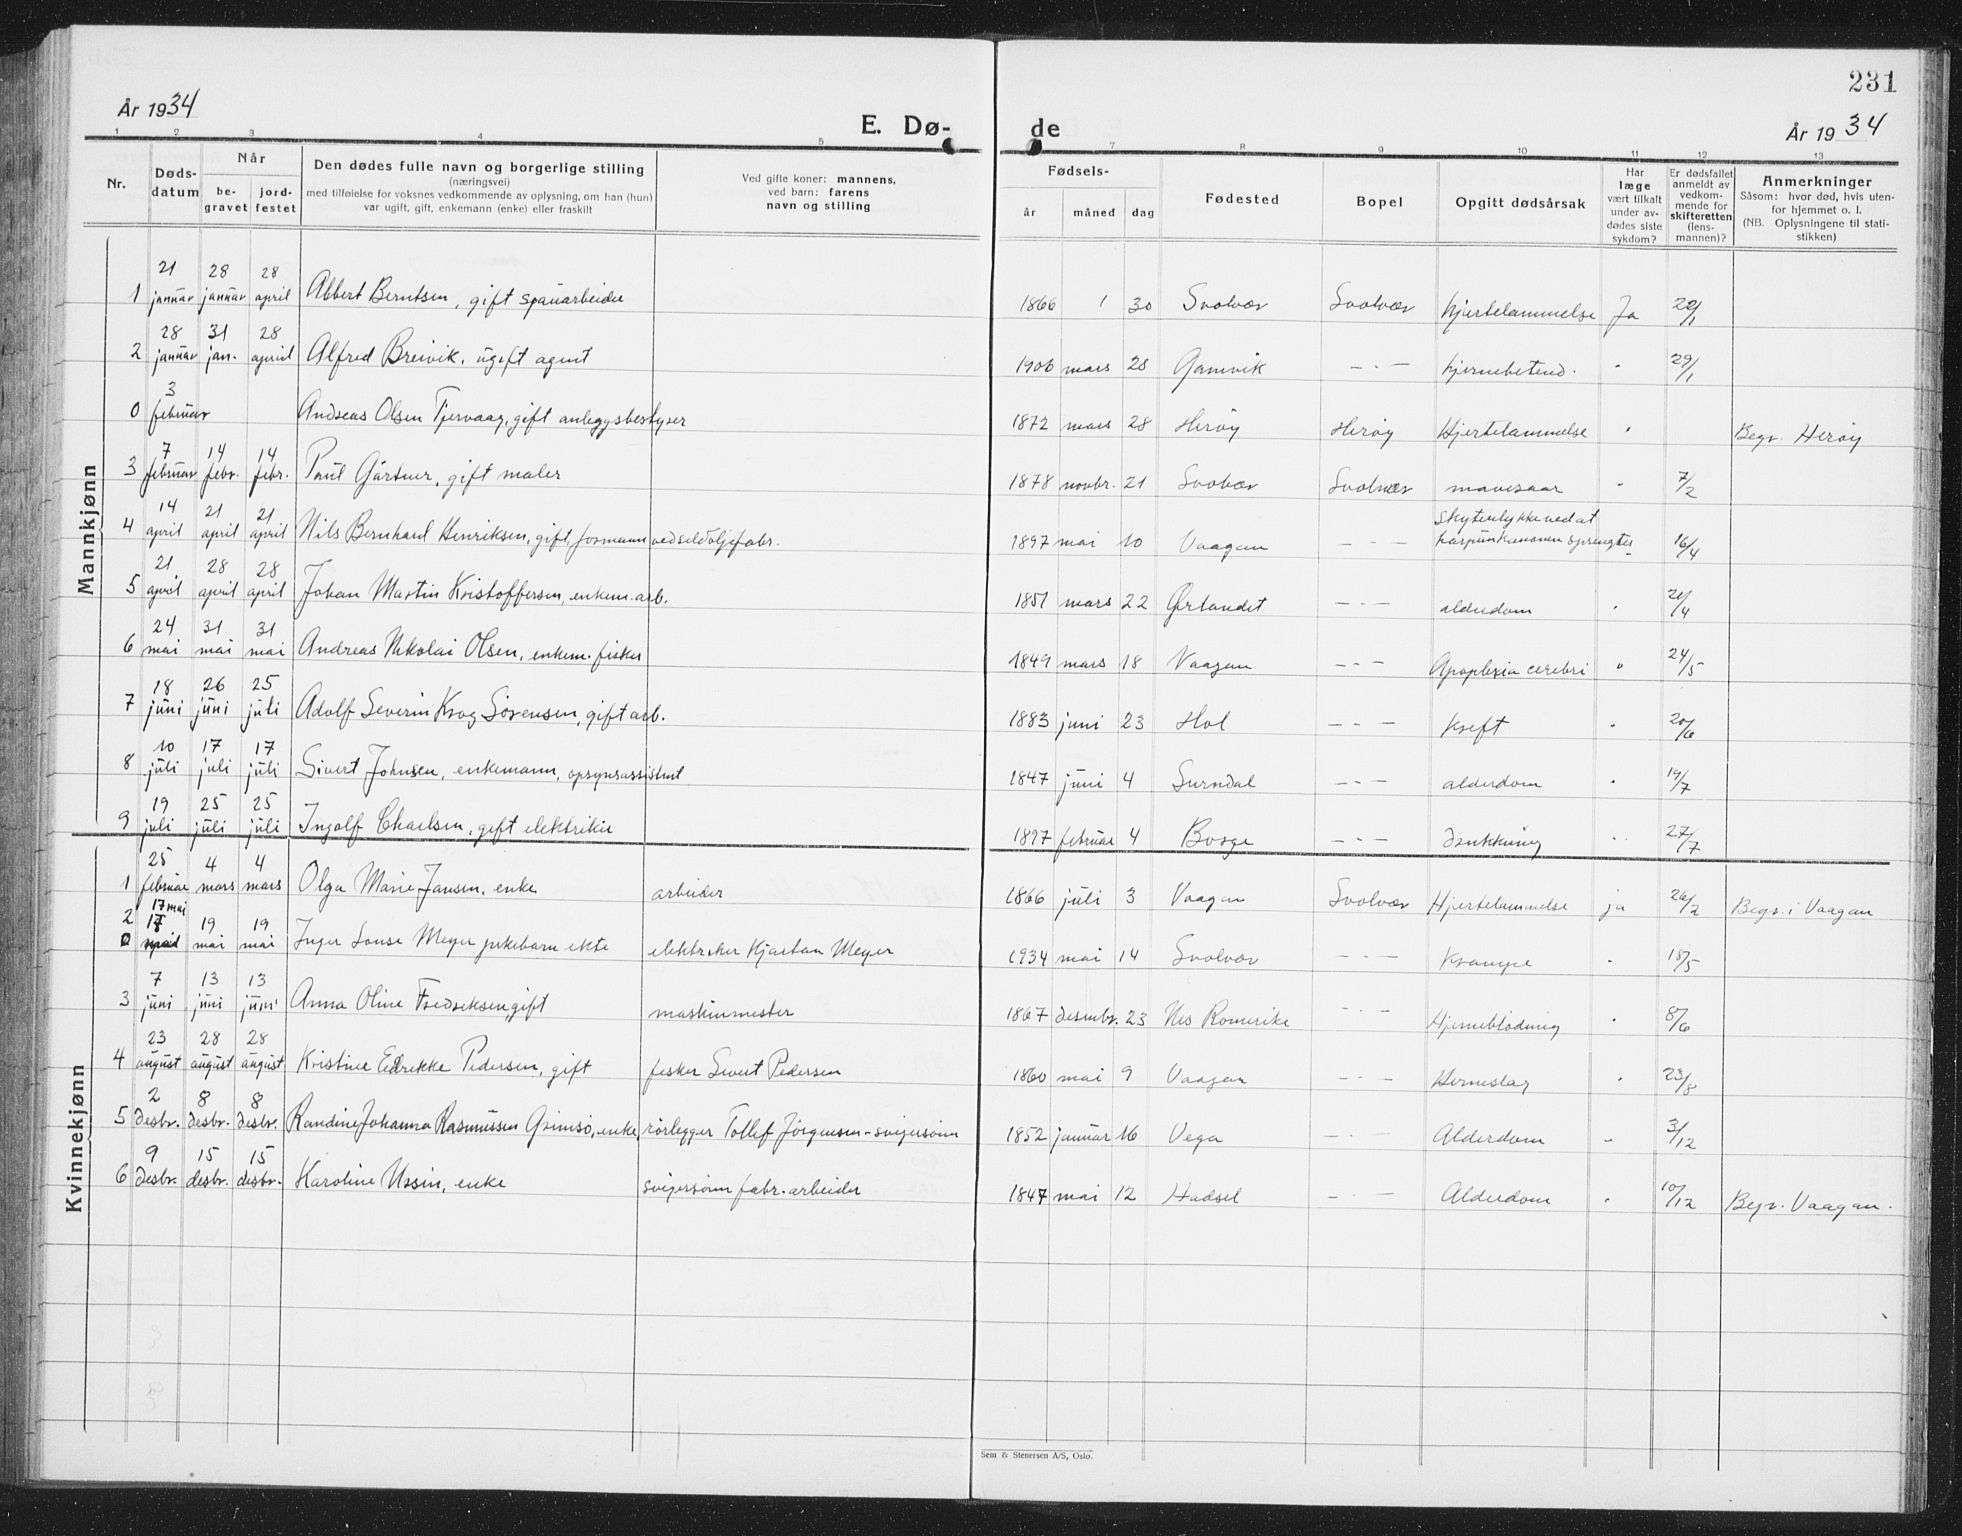 231
År 1934
E. Dø-
de
År 1934
1 2 3 4 5 7 8 9 10 11 12 13
Nr.
Døds-
datum
Når
be-
gravet
jord-
festet
Den dødes fulle navn og borgerlige stilling
(næringsvei)
med tilføielse for voksnes vedkommende av oplysning, om han (hun)
var ugift, gift, enkemann (enke) eller fraskilt
Ved gifte koner: mannens,
ved barn: farens
navn og stilling
Fødsels-
år måned dag
Fødested
Bopel
Opgitt dødsårsak
Har
læge
vært tilkalt
under av-
dødes siste
sykdom?
Er dødsfallet
anmeldt av
vedkom-
mende for
skifteretten
(lens-
mannen)?
Anmerkninger
Såsom: hvor død, hvis uten-
for hjemmet o. l.
(NB. Oplysningene til stati-
stikken)
Mannkjønn
21 28 28
1 januar januar april Albert Berntsen, gift 1866 1 30 Svolvær Svolvær hjertelammelse Ja 22/1
28 31 28
2 januar jan. april Alfred Breivik, ugift agent 1906 mars 28 Gamvik - " - hjernebetend. " 29/1
3
0 februar Andreas Olsen Tjervaag, gift anleggsbestyrer 1872 mars 28 Herøy Herøy Hjertelammelse " Begr. Herøy
7 14 14
3 februar febr. febr. Paul Gärtner, gift maler 1878 novbr. 21 Svolvær Svolvær mavesaar " 7/2
14 21 21 Skyteulykke ved at
4 april april april Nils Bernhard Henriksen, gift, formann ved sildoljefabr. 1897 mai 10 Vaagan - " - harpunkanonen sprengtes " 16/4
21 28 28
5 april april april Johan Martin Kristoffersen, enkem. arb. 1851 mars 22 Ørlandet - " - alderdom " 21/4
24 31 31
6 mai mai mai Andreas Nikolai Olsen, enkem. fisker 1849 mars 18 Vaagan - " - Apoplexia cerebri " 24/5
18 26 25
7 juni juni juli Adolf Severin Krog Sørensen, gift arb. 1883 juni 23 Hol - " - Kreft " 20/6
10 17 17
8 juli juli juli Sivert Johnsen, enkemann, opsynsassistent 1847 juni 4 Surndal - " - alderdom " 19/7
19 25 25
9 juli juli juli Ingolf Charlsen, gift elektriker 1897 februar 4 Borge - " - drukning " 27/7
Kvinnekjønn
25 4 4
1 februar mars mars Olga Marie Jansen, enke arbeider 1866 juli 3 Vaagan Svolvær Hjertelammelse ja 26/2 Begr. i Vaagan
17 mai
2 17 19 19
0 april mai mai Inger Louse Meyer pikebarn ekte elektriker Kjartan Meyer 1934 mai 14 Svolvær - " - Krampe " 18/5
7 13 13
3 juni juni juni Anna Oline Fredriksen, gift maskinmester 1867 desmbr. 23 Nes Romerike - " - Hjerneblødning " 8/6
23 28 28
4 august august august Kristine Edrikke Pedersen, gift fisker Sivert Pedersen 1860 mai 9 Vaagan - " - Herneslag " 23/8
2 8 8
5 desbr. desbr. desbr. Randine Johanna Rasmussen Grimsø, enke, rørlegger Tollef Jørgensen - svigersønn 1852 januar 16 Vega - " - Alderdom " 3/12
9 15 15
6 desbr. desbr. desbr. Karoline Ussin, enke svigersønn fabr. arbeider 1847 mai 12 Hadsel - " - Alderdom " 10/12 Begr. Vaagan.
Sem & Stenersen A/S, Oslo.